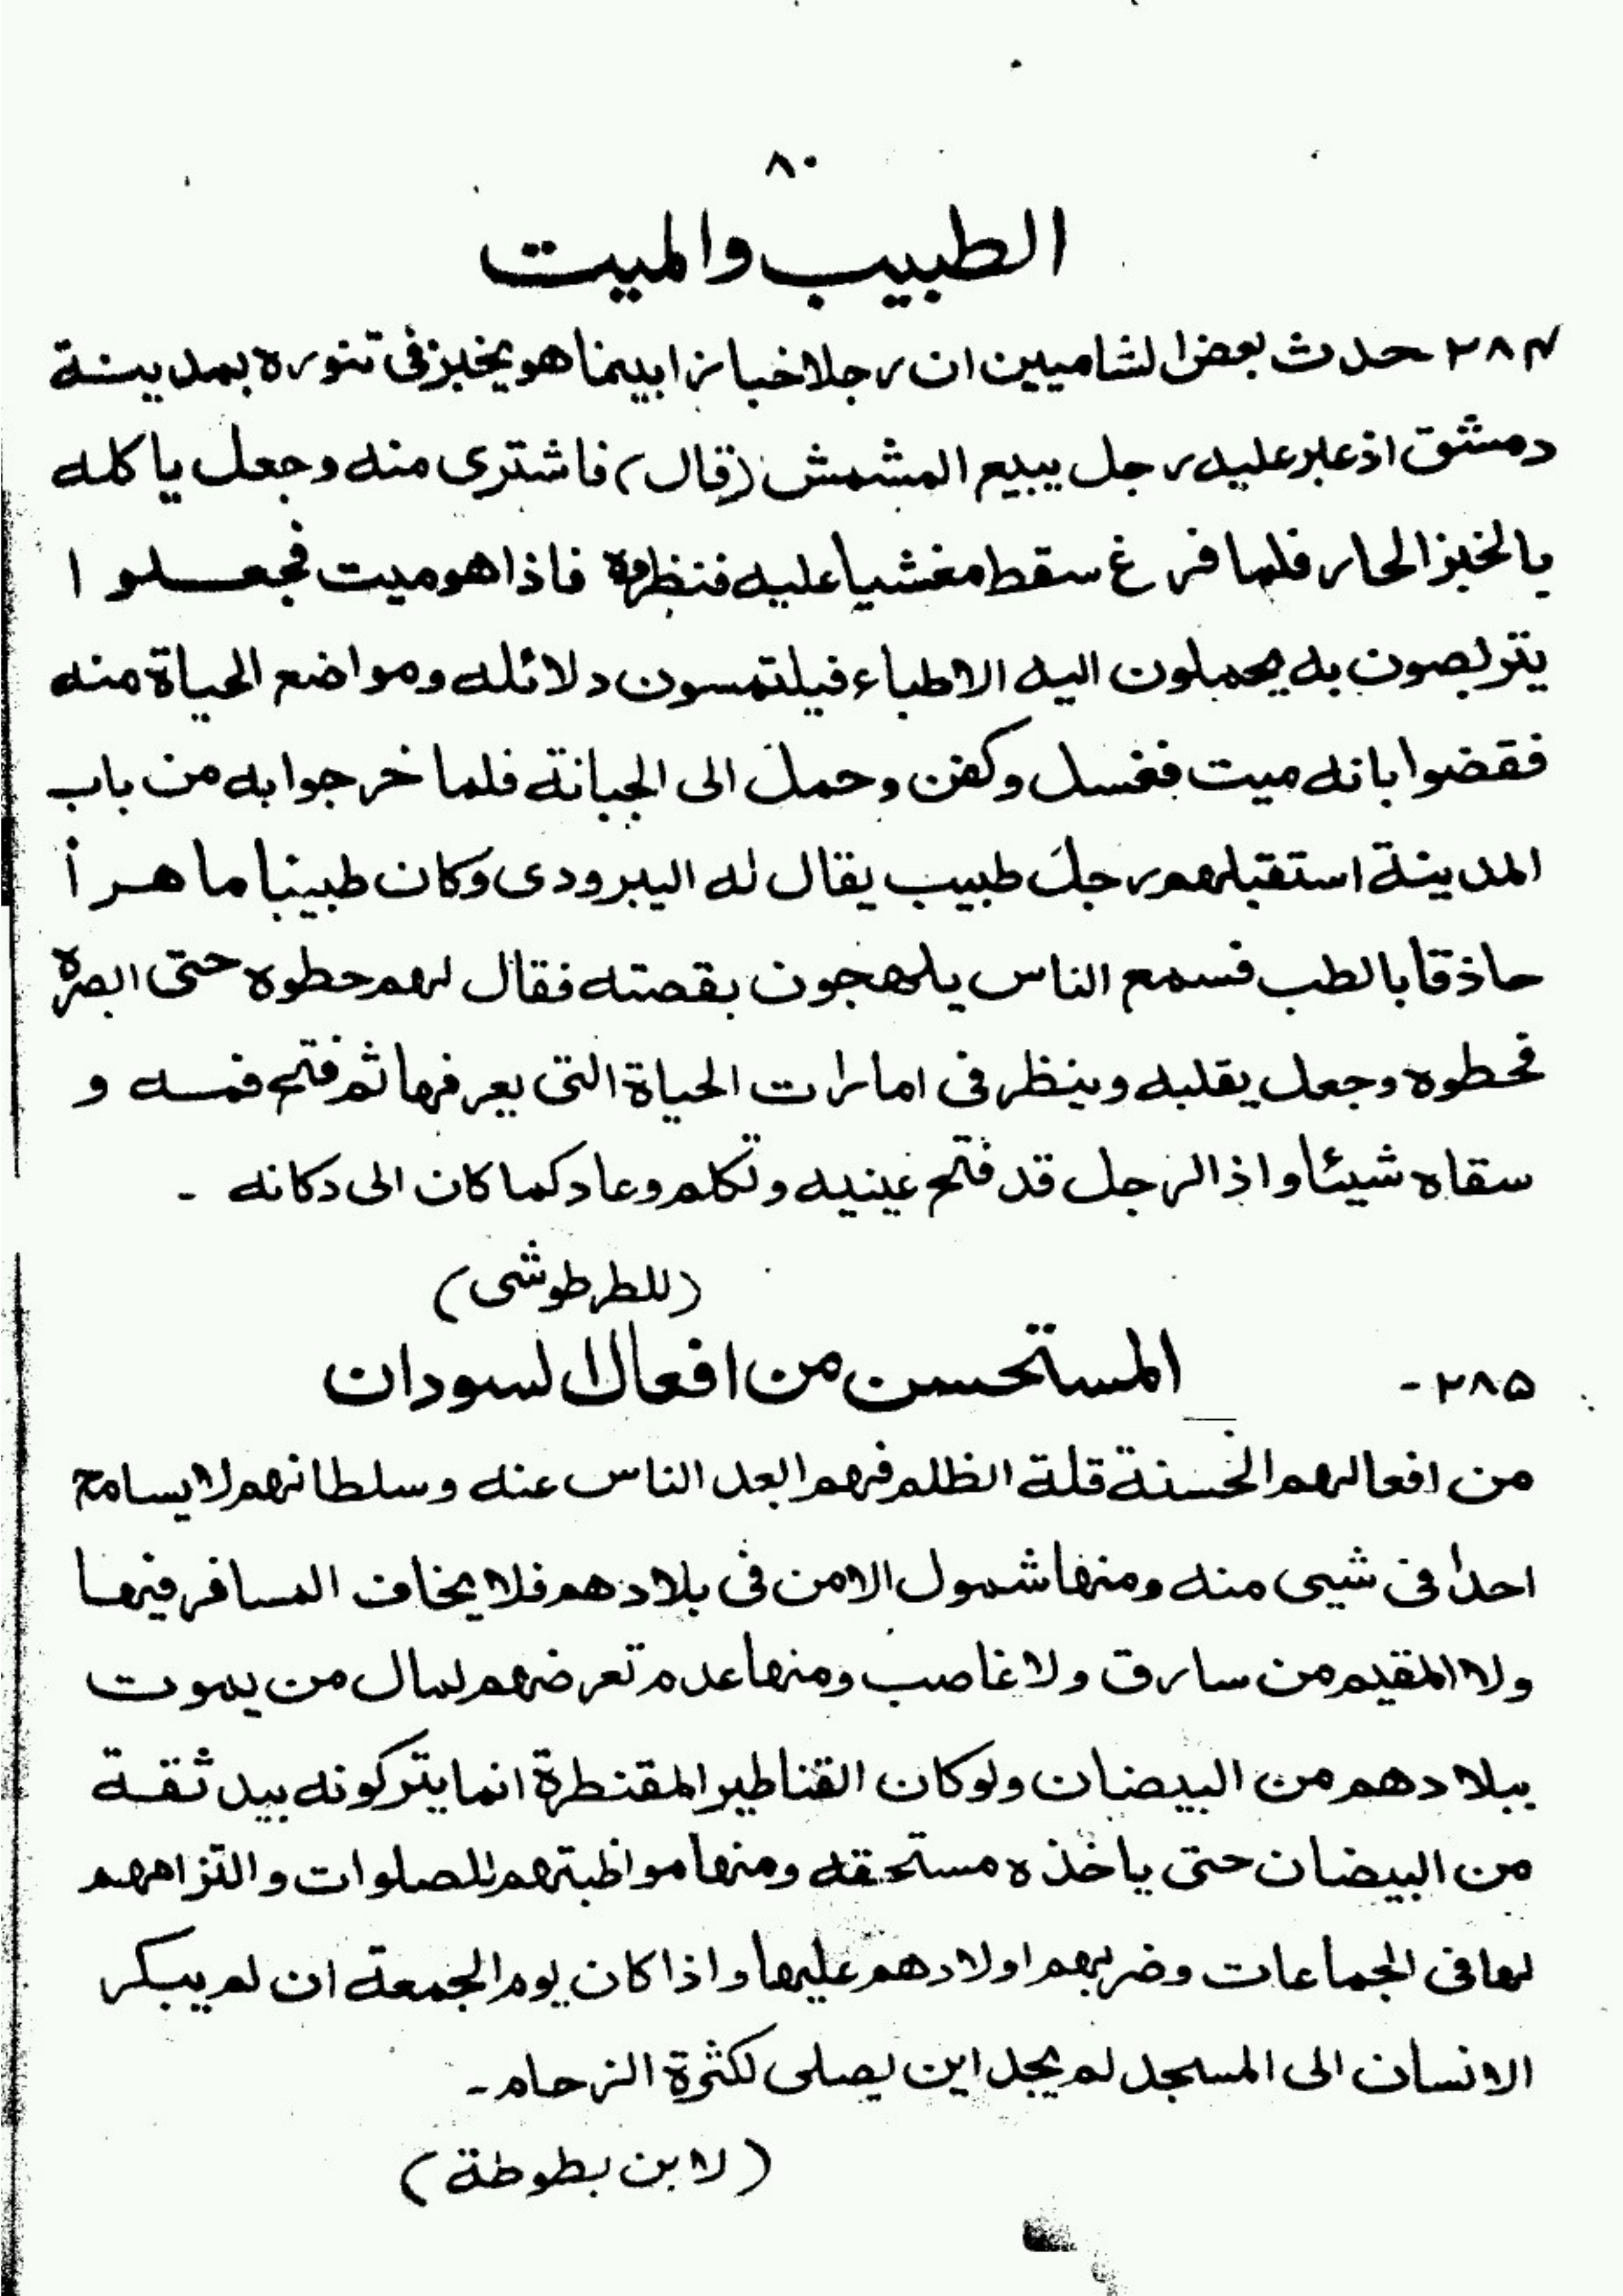 ٨٠
الطبيب والميت
٢٨٤ - حدث بعض الشاميين ان رجلا خبازا بينما هو يخبز فى تنوره بمدينة
دمشق اذ عبر عليه رجل يبيع المشمش (قال) فاشترى منه وجعل ياكله
بالخبز الحار فلما فرغ سقط مغشيا عليه فنظروه فاذا هو ميت فجعلوا
يتربصون به يحملون اليه الاطباء فيلتمسون دلائله ومواضع الحياة منه
فقضوا بانه ميت فغسل وكفن وحمل الى الجبانة فلما خرجوا به من باب
المدينة استقبلهم رجل طبيب يقال له اليبرودى وكان طبيبا ماهرأ
حاذقا بالطب فسمع الناس يلهجون بقصته فقال لهم حطوه حتى ابصره
فحطوه وجعل يقلبه وينظر فى امارات الحياة التى يعرفها ثم فتح فمه و
سقاه شيئا واذ الرجل قد فتح عينيه وتكلم وعاد كما كان الى دكانه -
(للطرطوشى)
٢٨٥ - المستحسن من افعال السودان
من افعالهم الحسنة قلة الظلم فهم ابعد الناس عنه وسلطانهم لا يسامح
احدا فى شيى منه ومنها شمول الامن فى بلادهم فلا يخاف المسافر فيها
ولا المقيم من سارق ولا غاصب ومنها عدم تعرضهم لمال من يموت
ببلادهم من البيضان ولو كان القناطير المقنطرة انما يتركونه بيد ثقة
من البيضان حتى ياخذه مستحقه ومنها مواظبتهم للصلوات والتزامهم
لها فى الجماعات وضربهم اولادهم عليها واذا كان يوم الجمعة ان لم يبكر
الانسان الى المسجد لم يجد اين يصلى لكثرة الزحام -
(لابن بطوطة)